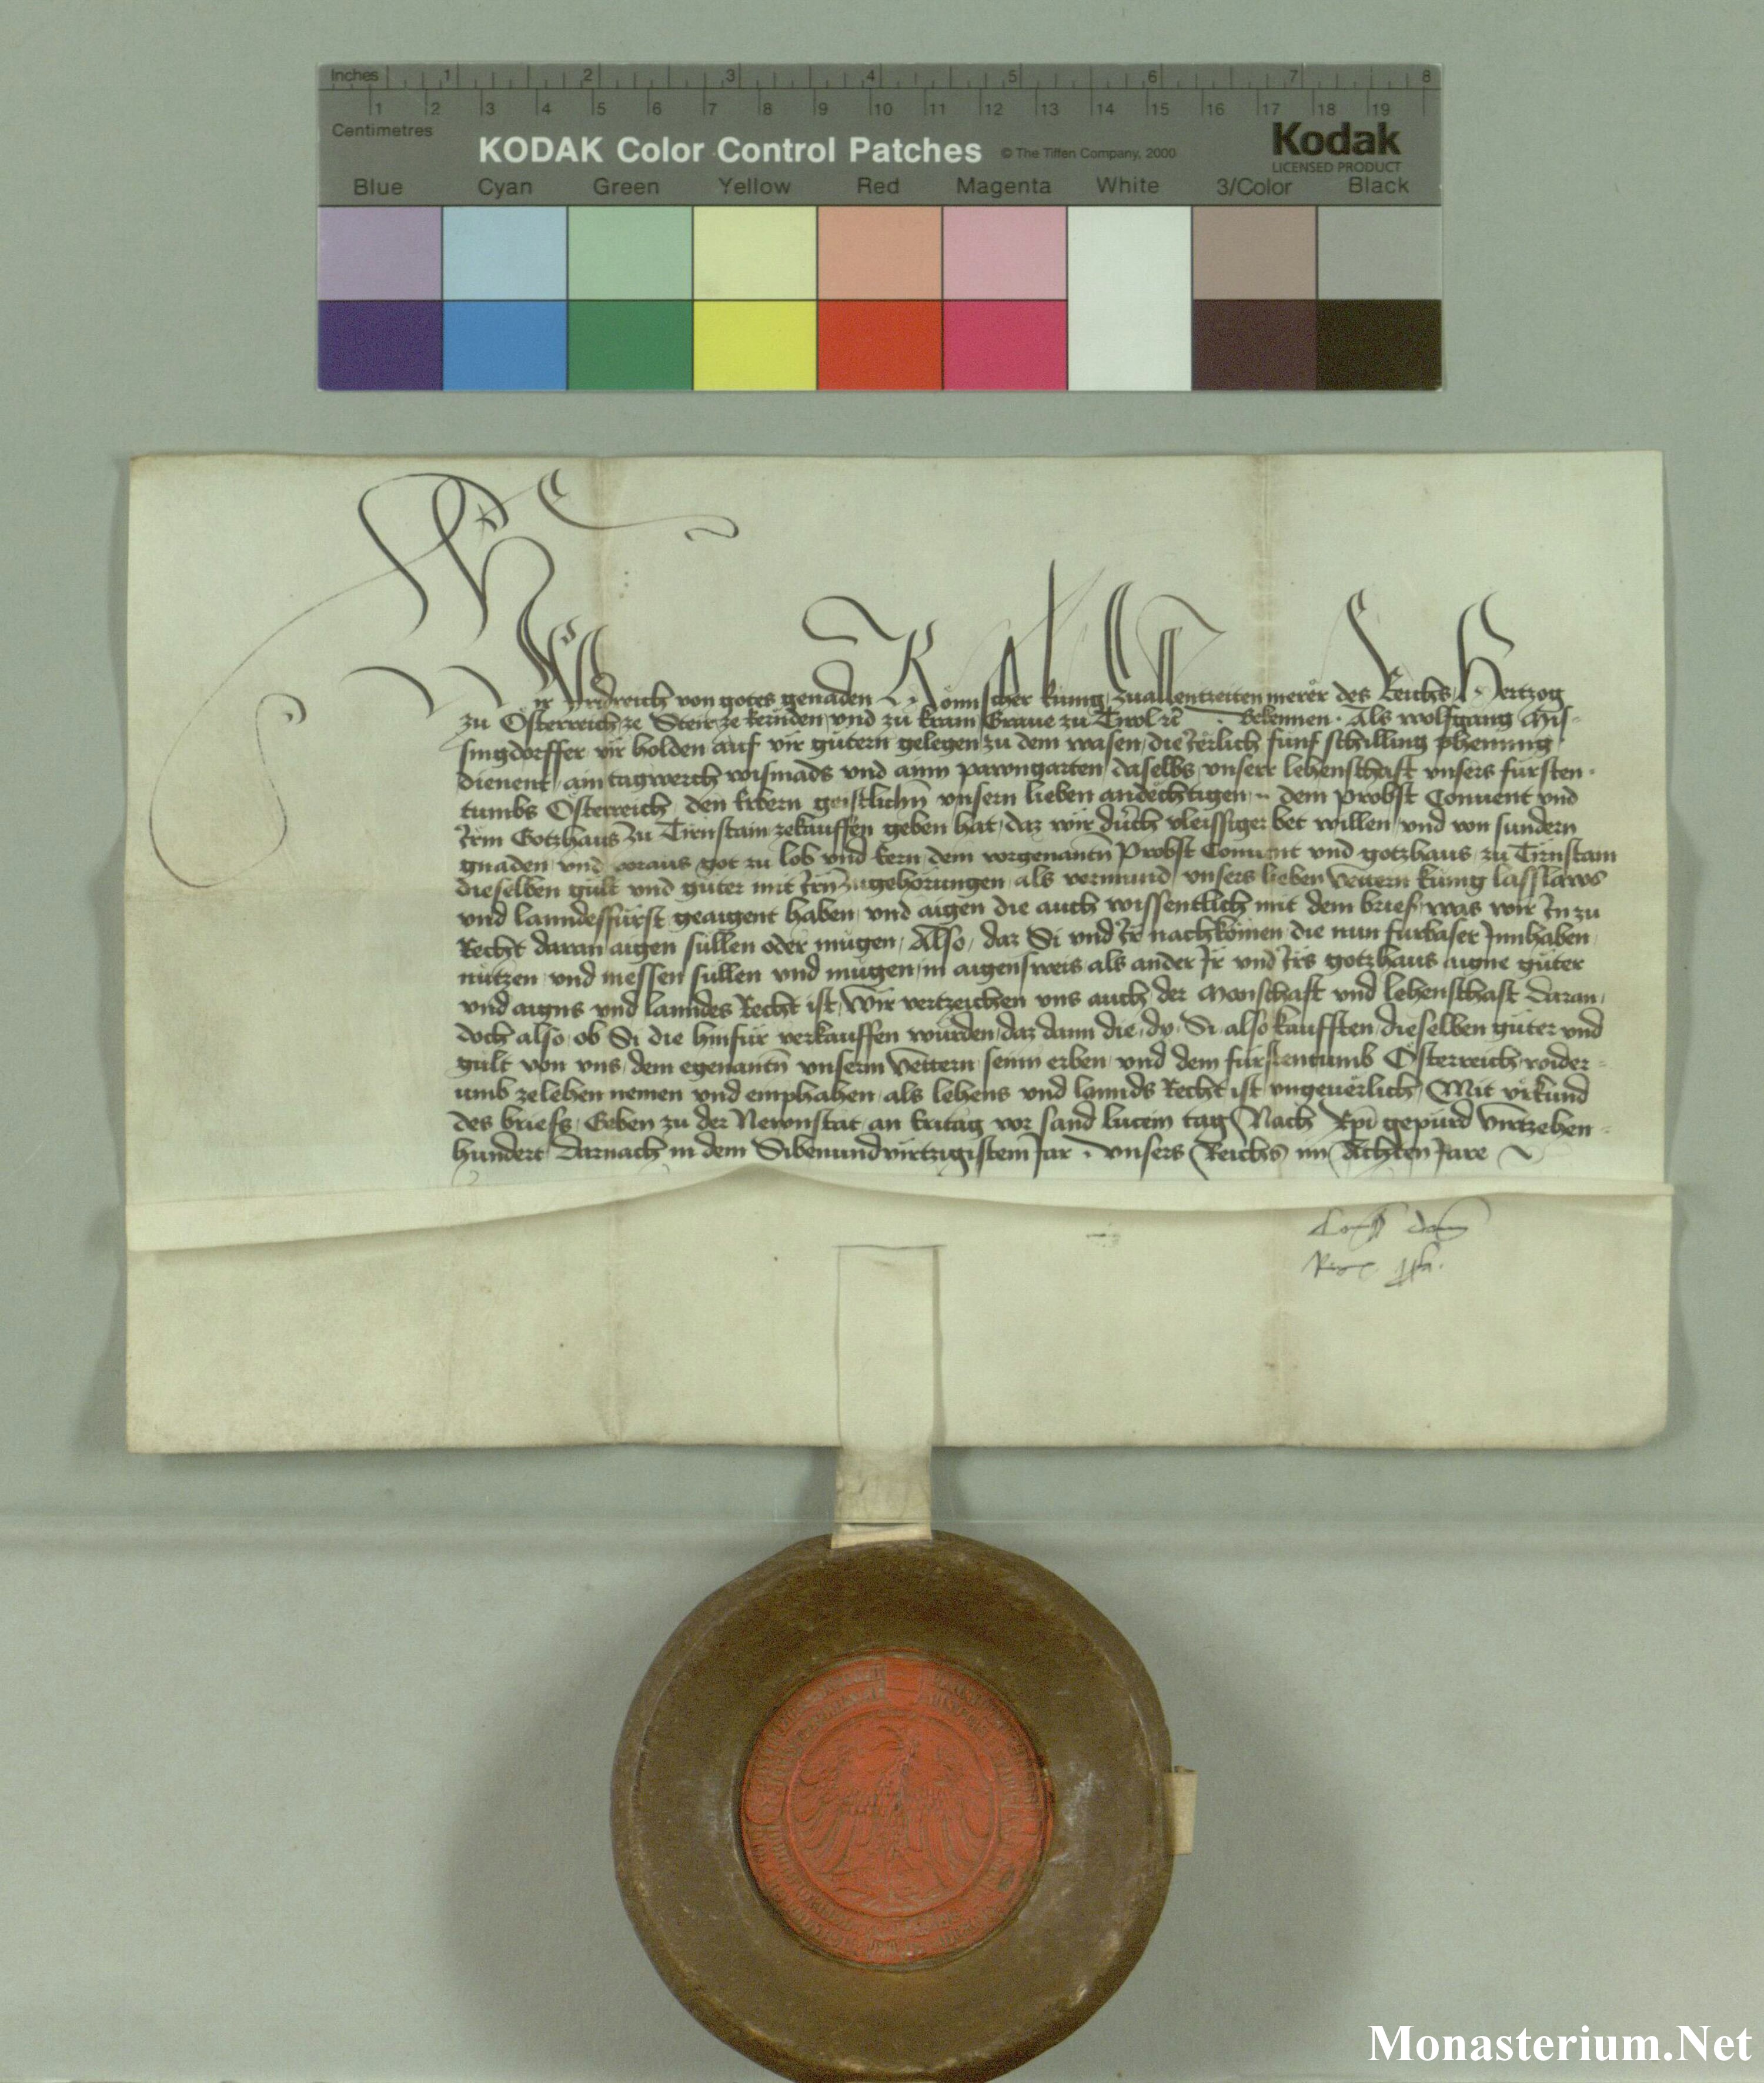 Inches 1 2 3 4 5 6 7 8
1 2 3 4 5 6 7 8 9 10 11 12 13 14 15 16 17 18 19
Centimetres
KODAK Color Control Patches © The Tiffen Company, 2000 Kodak
LICENSED PRODUCT
Blue Cyan Green Yellow Red Magenta White 3/Color Black
Wir Fridreich von gotes genaden Römischer kunig zuallentzeiten merer des Reichs Hertzog
zu Österreich ze Steir ze kernden und zu krain Graue zu Tirol etc̃ Bekennen. Als wolfgang Mis-
singdorffer vir holden auf vir gütern gelegen zu dem wasen, die Ierlich fünf schilling phenning
dienent, ain tagwerch wismads und ainn pawngarten daselbs unserr lehenschaft unsers fürsten-
tumbs Österreich, den Erbern geistlichñ unsern lieben andechtigen .. dem Probst Conuent und
Irm Gotzhaus zu Tirnstain zekauffen geben hat, daz wir durch vleissiger bet willen, und von sundern
gnaden, und voraus got zu lob und Eern, dem vorgenantñ Probst Conuent und gotzhaus zu Tirnstain
dieselben gült und güter mit Irñ zugehörungen, als vormund unsers lieben vettern kunig lasslaws
und lanndesfürst geaigent haben, und aigen die auch wissentlich mit dem brief, was wir In zu
Recht daran aigen süllen oder mügen, Also, daz Si und Ir nachkomen die nun fürbaser Innhaben,
nützen und niessen süllen und mügen, in aigensweis als ander Ir und Irs gotzhaus aigne güter
und aigns und lanndes Recht ist, Wir vertzeichen uns auch der Manschaft und lehenschaft daran,
doch also, ob Si die hinfür verkauffen würden, daz dann die, dy Si also kaufften, dieselben güter und
gült von uns, dem egenantñ unserm vettern, seinn erben, und dem fürstentumb Österreich wider-
umb zelehen nemen und emphahen, als lehens und lannds Recht ist ungeuerlich, Mit urkund
des briefs, Geben zu der Newnstat, an Eritag vor sand lucein tag Nach Kpĩ gepurd virtzehen-
hundert Darnach in dem Sibenundvirtzigistem Jar, unsers Reichs im Achten Jare
Monasterium.Net